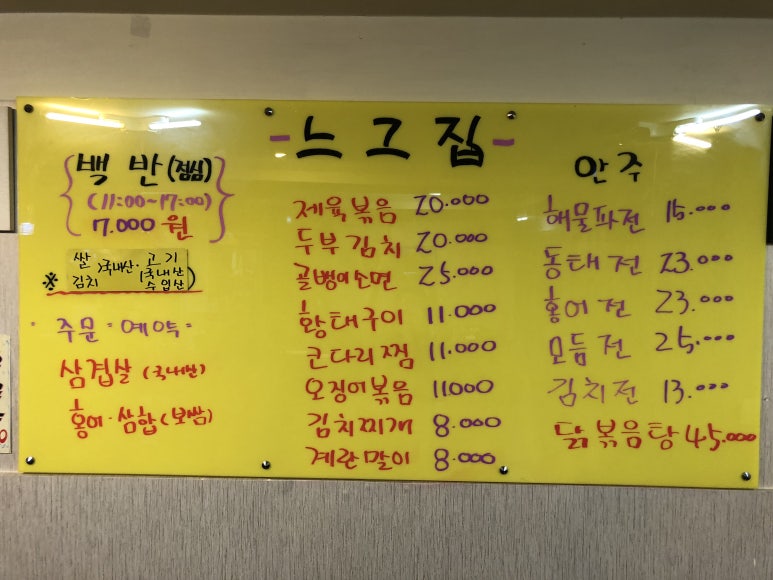 -느그집-
백반(점심)
(11:00~17:00)
7.000원
쌀 김치 >국내산· 고기 (국내산 수입산)
※
"주문·예약"
삼겹살 (국내산)
홍어·삼합(보쌈)
제육볶음 20.000
두부김치 20.000
골뱅이소면 25.000
황태구이 11.000
코다리찜 11.000
오징어볶음 11.000
김치찌개 8.000
계란말이 8.000
안주
해물파전 15.000
동태전 23.000
홍어전 23.000
모듬전 25.000
김치전 13.000
닭볶음탕 45.000